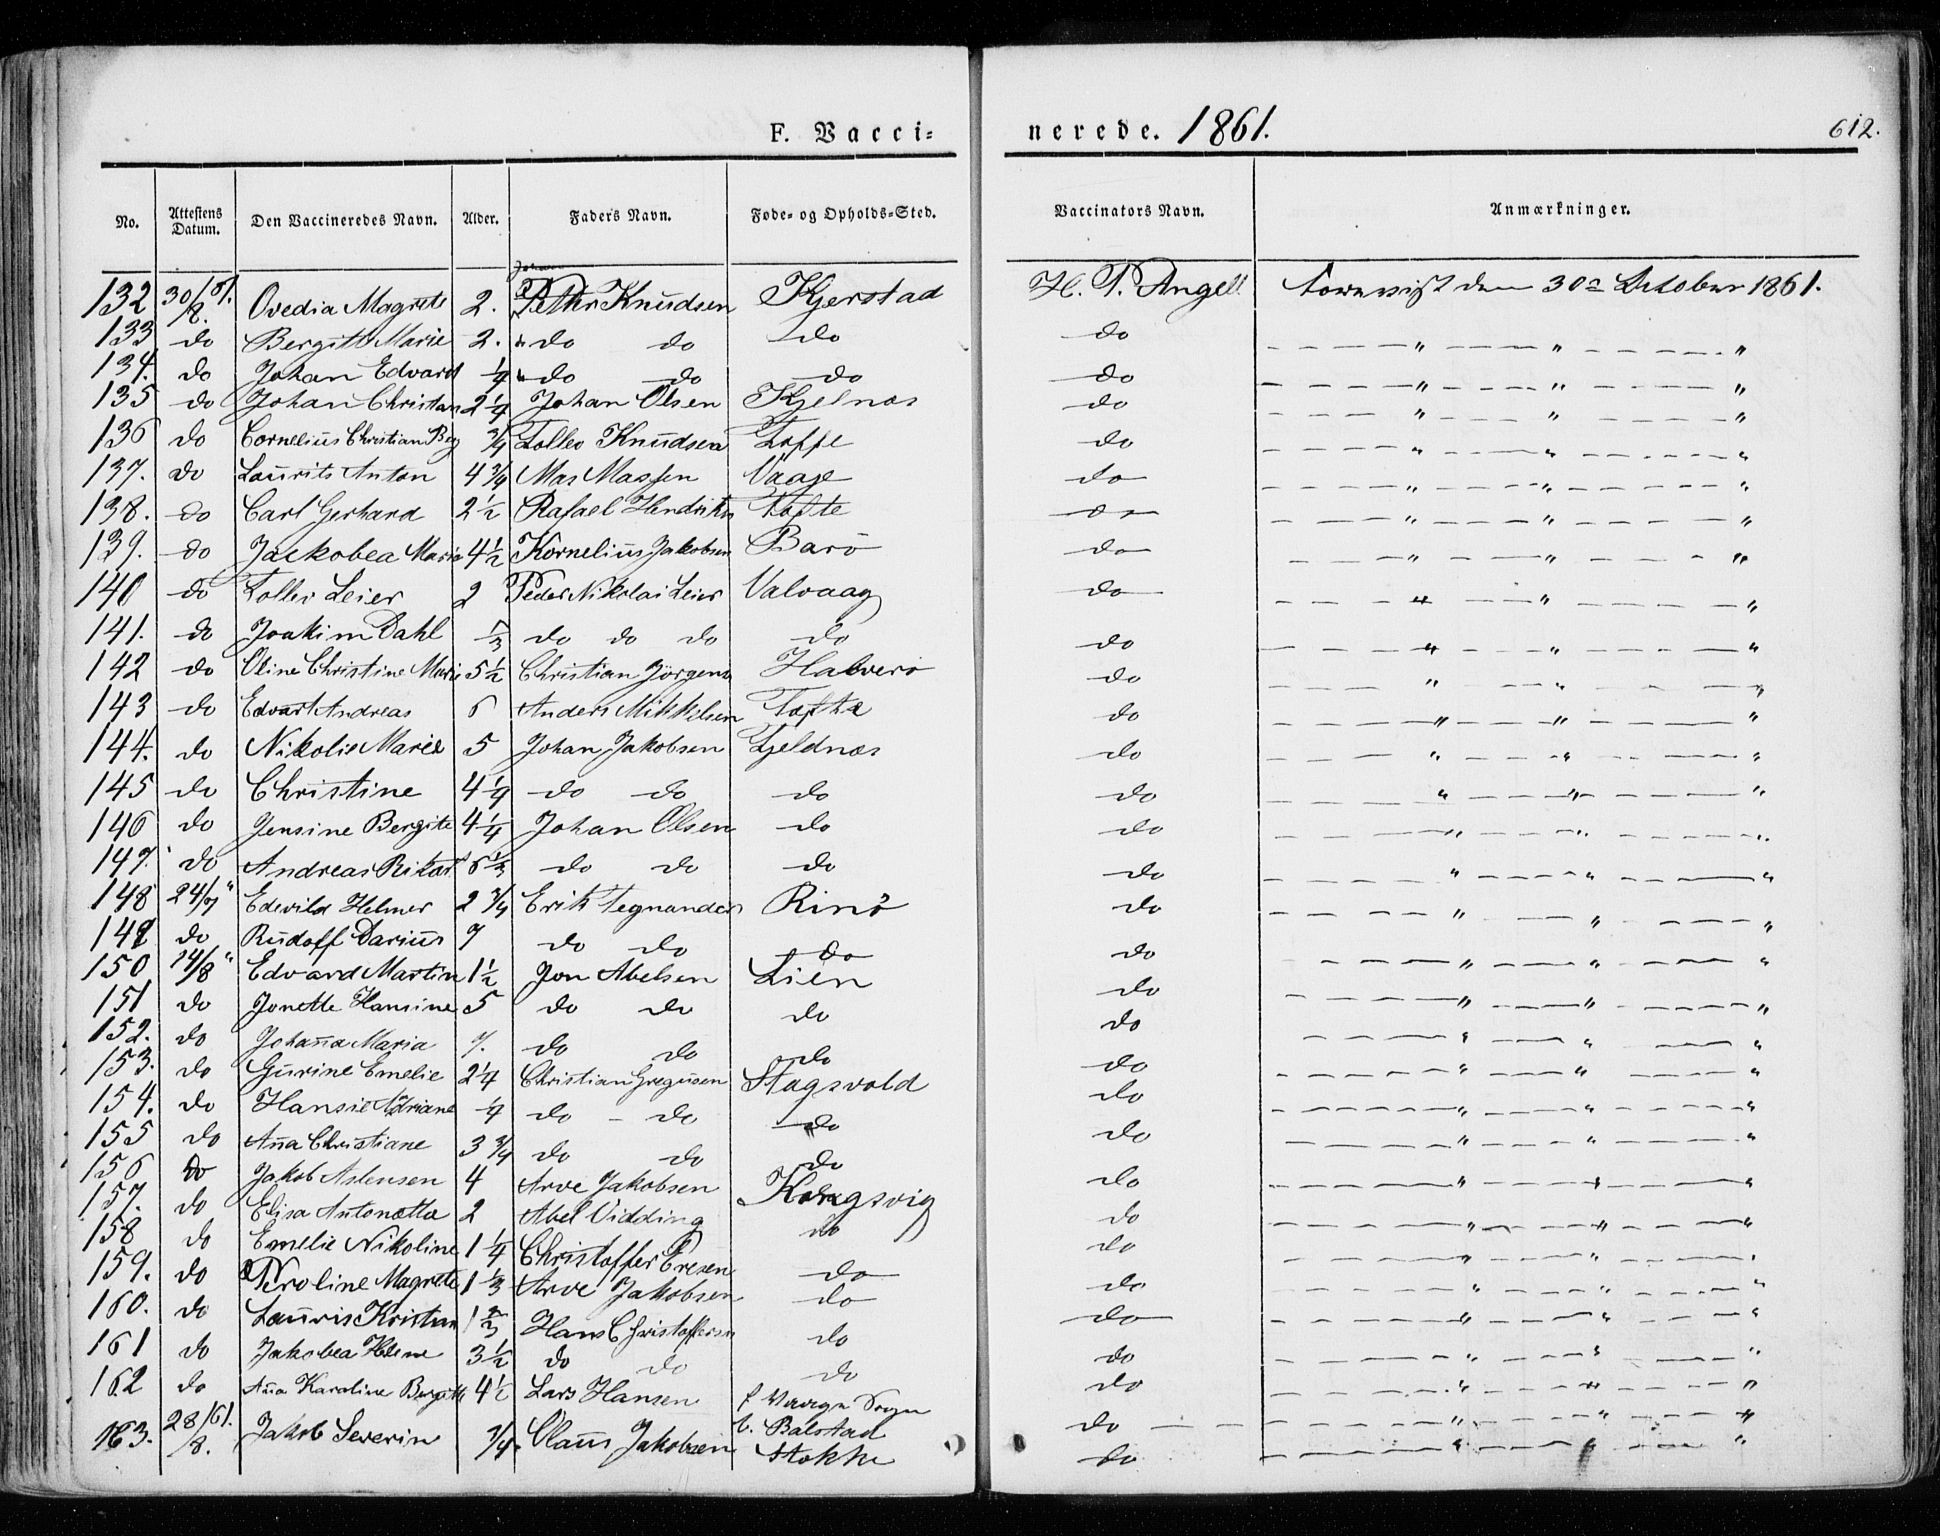 F. Vacci-
nerede. 1861.
612.
No. Attestens Datum. Den Vaccineredes Navn. Alder. Faders Navn. Føde- og Opholds-Sted. Vaccinators Navn. Anmærkninger.
Johan
132 30/8 61. Ovedia Magrete 2. Petter Knudsen Kjerstad H. P. Angell den 30te October 1861.
133 do Bergitte Marie 2. " do do do do — " — " — "
134. do Johan Edvard 1/4 " do do do do — " — " — "
135 do Johan Christian 2 1/4 Johan Olsen Kjelnæs do — " — " — "
136 do Cornelius Christian Berg 3/4 Tollev Knudsen Tofte do — " — " — "
137. do Laurits Anton 4 3/4 Mas Massen Vaage do — " — " — "
138. do Carl Gerhard 2 1/2 Rafael Hendriks Tofte do — " — " — "
139. do Jackobea Marie 4 1/2 Kornelius Jakobsen Barö do — " — " — "
140 do Tollev Leier 2 Peder Nikolai Leier Valvaag do — " — " — "
141. do Joakim Dahl 1/3 do do do do do — " — " — "
142 do Oline Christine Marie 5 1/2 Christian Jörgens Halverö do — " — " — "
143 do Edvart Andreas 6 Anders Mikkelsen Tofte do — " — " — "
144. do Nikolie Marie 5 Johan Jakobsen Kjeldnæs do — " — " — "
145 do Christine 4 1/4 do do do do — " — " — "
146 do Jensine Bergite 4 1/4 Johan Olsen do do — " — " — "
147. do Andreas Rikart 6 1/3 do do do do — " — " — "
148 24/7 " Edevild Helmer 2 3/4 Erik Tegnander Rinö do — " — " — "
149 do Rudolf Darius 7 do do do do — " — " — "
150 14/8 " Edvard Martin 1 1/2 Jon Abelsen Lien do — " — " — "
151 do Jonette Hansine 5 do do do do — " — " — "
152. do Johanna Maria 7. do do do do — " — " — "
153. do Gurine Emelie 2 1/4 Christian Gregusen Stagsvold do — " — " — "
154. do Hansie Adriane 1/4 do - do do do — " — " — "
155 do Anna Christiane 3 3/4 do do do do — " — " — "
156 do Jakob Aslensen 4 Arve Jakobsen Kongsvig do — " — " — "
157. do Elisa Antonette 2 Abel Vidding do do — " — " — "
158 do Emelie Nikoline 1 1/4 Christoffer Eresen do do — " — " — "
159. do Peroline Magrete 1 1/3 Arve Jakobsen do do — " — " — "
160. do Lauris Kristian 1 2/3 Hans Christoffersen do do — " — " — "
161 do Jakobea Helene 3 1/2 do do do do — " — " — "
162 do Anna Karoline Bergitte 4 1/2 Lars Hansen f Sogn b. Balstad do — " — " — "
163. 28/8 61. Jakob Severin 3/4. Claus Jakobsen Stokke do — " — " — "